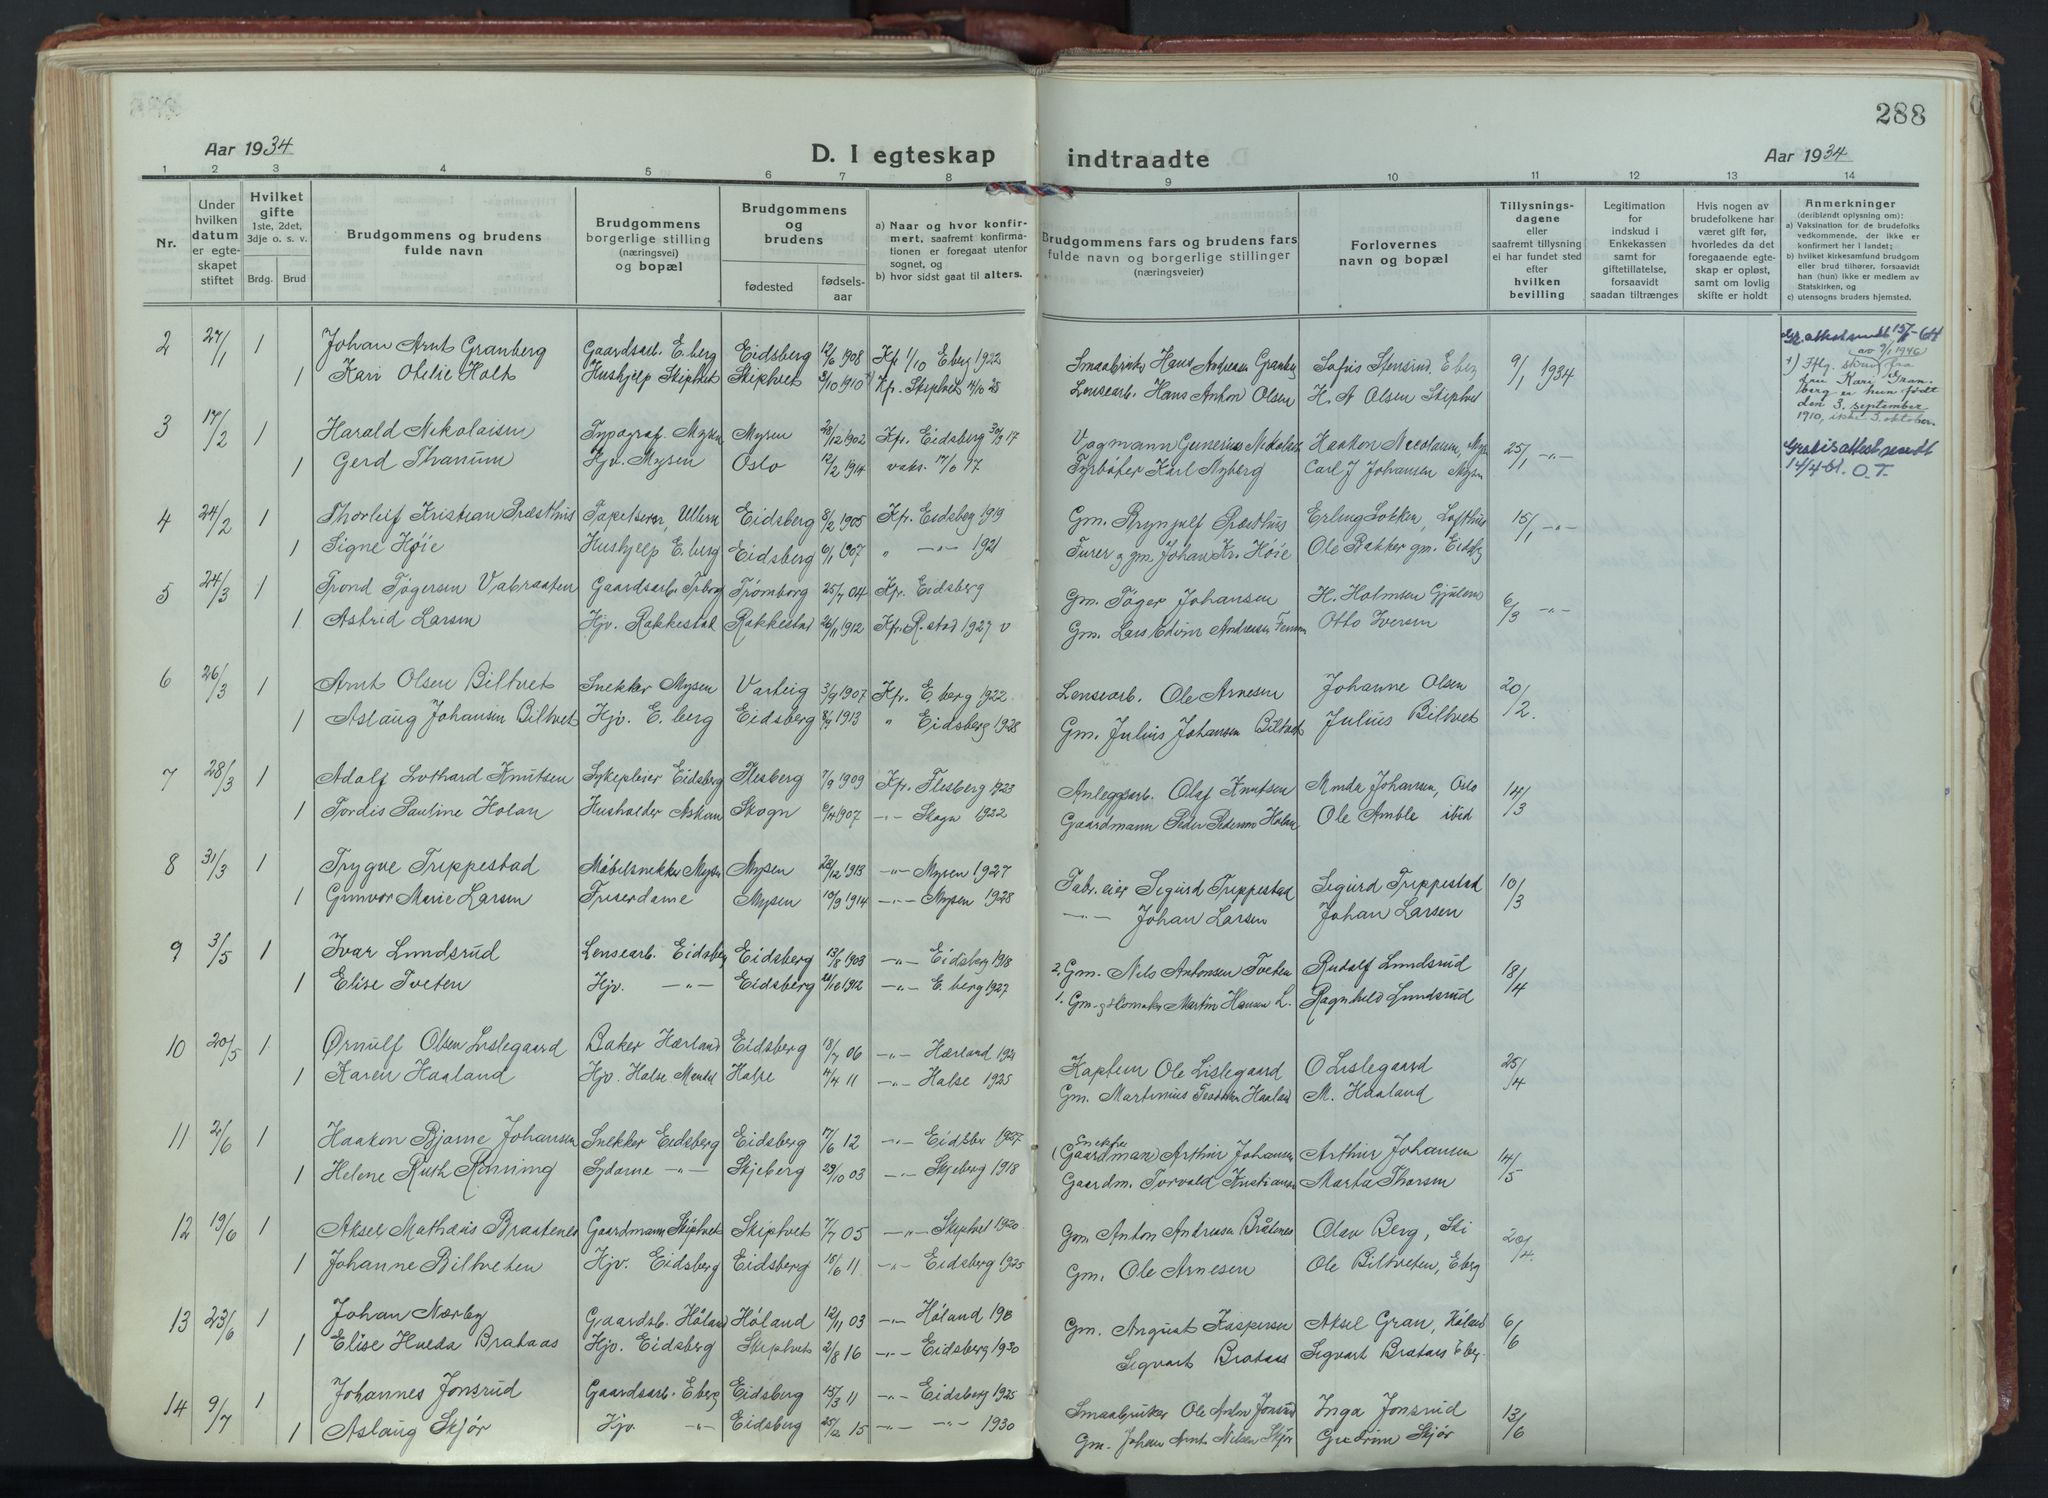 288
Aar 1934
D. I egteskap
indtraadte
Aar 1934
1 2 3 4 5 6 7 8 9 10 11 12 13 14
Nr.
Under hvilken datum er egteskapet stiftet
Hvilket gifte 1ste, 2det, 3dje o. s. v.
Brdg. Brud
Brudgommens og brudens fulde navn
Brudgommens borgerlige stilling (næringsvei) og bopæl
Brudgommens og brudens
fødested
fødselsaar
a) Naar og hvor konfirmert, saafremt konfirmationen er foregaat utenfor sognet, og
b) hvor sidst gaat til alters.
Brudgommens fars og brudens fars fulde navn og borgerlige stillinger (næringsveier)
Forlovernes navn og bopæl
Tillysningsdagene eller saafremt tillysning ei har fundet sted efter hvilken bevilling
Legitimation for indskud i Enkekassen samt for giftetillatelse, forsaavidt saadan tiltrænges
Hvis nogen av brudefolkene har været gift før, hvorledes da det foregaaende egteskap er opløst, samt om lovlig skifte er holdt
Anmerkninger (deriblandt oplysning om):
a) Vaksination for de brudefolks vedkommende, der ikke er konfirmert her i landet;
b) hvilket kirkesamfund brudgom eller brud tilhører, forsaavidt han (hun) ikke er medlem av Statskirken, og
c) utensogns bruders hjemsted.
2 27/1 1 Johan Arnt Granberg Gaardsarb. E.berg Eidsberg 12/6 1908 Kf. 1/10 Eberg 1922 Smaabruker Hans Andreasen Granberg Sofus Stensrud Eberg 9/1 1934
1 Kari Otelie Holt Hushjelp Skiptvet Skiptvet 3/10 1910 Kf. Skiptvet 4/10 25 Lensearb. Hans Anton Olsen H. A Olsen Skiptvet
Gr. attest sendt 15/7-64
av 9/1 1946
+) Iflg. skriv fra
fru Kari Gran
berg er hun født
den 3. september
1910, ikke 3. oktober.
3 17/2 1 Harald Nikolaisen Typograf. Mysen Mysen 28/12 1902 Kfr. Eidsberg 30/9 17 Vogmann Gunerius Nikolaisen Haakon Nicolaisen, Mys. 25/1 -"-
1 Gerd Thanum Hjv. Mysen Oslo 12/2 1914 vaks. 17/ 17 Fyrbøter Karl Nyberg Carl J Johansen Mysen
Gratisattest sendt
14/4-51. O.T.
4 24/2 1 Thorleif Kristian Præsthus Ullern Eidsberg 8/2 1905 Kfr. Eidsberg 1919 Gm. Brynjulf Præsthus Erling Løkken, Lofthus 15/1 -"-
1 Signe Høie Hushjelp E.berg Eidsberg 6/1 1907 " -"- 1921 Furer og gm. Johan Kr. Høie Ole Bakker gm. Eidsbg
5 24/3 1 Trond Tøgersen Vabraaten Gaardsarb. Trborg Trømborg 25/7 04 Kfr. Eidsberg Gm. Tøger Johansen H. Holmsen Gjulem 6/3 -"-
1 Astrid Larsen Hjv. Rakkestad Rakkestad 26/11 1912 Kfr. R.stad 1927 v Gm. Lars Edvin Andreasen Otto Iversen
6 26/3 1 Arnt Olsen Biltvet Snekker Mysen Varteig 3/9 1907 Kfr. E.berg 1922 Lensearb. Ole Arnesen Johanne Olsen 20/2.
1 Aslaug Johansen Biltvet Hjv. E.berg Eidsberg 1913 " Eidsberg 1928 Gm. Julius Johansen Biltvet Julius Biltvet
7 28/3 1 Adolf Lothard Knutsen Sykepleier Eidsberg Flesberg 7/9 1909 Kfr. Flesberg 1923 Anleggsarb. Olaf Knutsen Amda Johansen, Oslo 14/3
1 Tordis Pauline Holan Husholder Askim Skogn 6/4 1907 -"- Skogn 1922 Gaardmann Peder Pedersen Holan Ole Amble ibid
8 31/3 1 Trygve Trippestad Møbelsnekker Mysen Mysen 28/12 1913 -"- Mysen 1927 Fabr. eier Sigurd Trippestad Sigurd Trippestad 10/3
1 Gunvor Marie Larsen Friserdame Mysen 10/9 1914 -"- Mysen 1928 -"- Johan Larsen Johan Larsen
9 3/5 1 Ivar Lundsrud Lensearb. Eidsberg Eidsberg 13/8 1903 -"- Eidsberg 1918 2. Gm. Nils Antonsen Tveten Rudolf Lundsrud 18/4
1 Elise Tveten Hjv. -"- Eidsberg 21/10 1912 -"- E.berg 1927 1. Gm. og skomaker Martin Hansen L. Ragnhild Lundsrud
10 20/5 1 Ørnulf Olsen Lislegaard Baker Hærland Eidsberg 18/7 06 -"- Hærland 1921 Kaptein Ole Lislegaard O Lislegaard 25/4
1 Karen Haaland Hjv. Halse Mandal Halse 4/4 11 -"- Halse 1925 Gm. Martinius Haaland M. Haaland
11 2/6 1 Haakon Bjarne Johansen Snekker Eidsberg Eidsberg 17/6 12 -"- Eidsber 1927 Snekker (Gaardman) Arthur Johansen Arthur Johansen 14/5
1 Helene Ruth Rønning Sydame -"- Skjeberg 29/10 03 -"- Skjeberg 1918 Gaardm. Torvald Kristiansen Marta Thorsen
12 19/6 1 Aksel Mathæus Braatenes Gaardmann Skiptvet Skiptvet 7/7 05 -"- Skiptvet 1920 Gm. Anton Andreasen Bråtenes Olav Berg, Ski 20/4.
1 Johanne Biltveten Hjv. Eidsberg Eidsberg 15/6 11 -"- Eidsberg 1925 Gm. Ole Arnesen Ole Biltveten, Eberg
13 23/6 1 Johan Nærby Gaardsb. Høland Høland 12/11 03 -"- Høland 1918 Gm. August Kaspersen Aksel Gran, Høland 6/6
1 Elise Hveda Brataas Hjv. Eidsberg Skiptvet 2/8 16 -"- Eidsberg 1930 Sigvart Brataas Sigvart Brataas Eber.
14 9/7 1 Johannes Jonsrud Gaardsarb. Eberg Eidsberg 15/3 11 -"- Eidsberg 1925 Smaabruker Ole Anton Jonsrud Inga Jonsrud 13/6
1 Aslaug Skjør Hjv. -"- Eidsberg 25/12 15 -"- -"- 1930 Gm. Johan Arnt Nilsen Skjør Gudrun Skjør